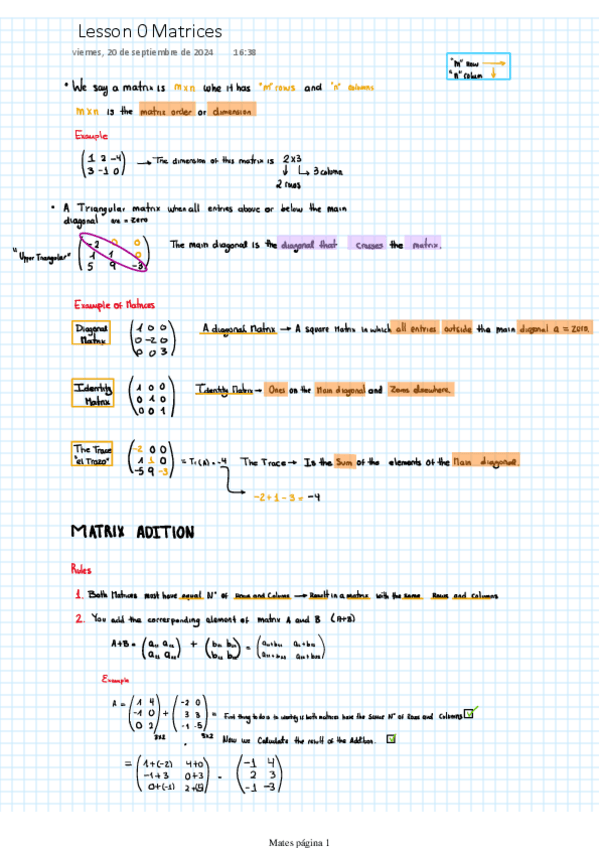 Lesson 0 Matrices
viernes, 20 de septiembre de 2024 16:38
"m" Row
"n" Colum
• We say a matrix is mxn whe it has "m" rows and "n" columns
mxn is the matrix order or dimension
Example
(1 2 -4)
(3 -1 0)
→ The dimension of this matrix is 2x3
↓ ↳ 3 colums
2 rows
• A Triangular matrix when all entries above or below the main
diagonal are = zero
"Upper Triangular"
(-2 0 0)
(1 1 0)
(5 9 -3)
The main diagonal is the diagonal that crosses the matrix.
Example of Matrices
Diagonal
Matrix
(1 0 0)
(0 -2 0)
(0 0 3)
A diagonal Matrix → A square Matrix in which all entries outside the main diagonal a = zero.
Identity
Matrix
(1 0 0)
(0 1 0)
(0 0 1)
Identity Matrix → Ones on the Main diagonal and Zeros elsewhere.
The Trace
"el Trazo"
(-2 0 0)
(1 1 0)
(-5 9 -3)
= Tr(A) = -4 The Trace → Is the Sum of the elements of the Main diagonal.
-2+1-3 = -4
MATRIX ADITION
Rules
1. Both Matrices must have equal Nº of Rows and Column → Result in a matrix with the same Rows and Columns
2. You add the corresponding element of matrix A and B (A+B)
A+B =
Example
A =
(1 4)
(-1 0)
(0 2)
3x2
+
(-2 0)
(3 3)
(-1 -5)
3x2
= First thing to do is to identify is both matrices have the same Nº of Rows and Columns
Now we Calculate the result of the Addition.
=
(1+(-2) 4+0)
(-1+3 0+3)
(0+(-1) 2+(-5))
=
(-1 4)
(2 3)
(-1 -3)
Mates página 1